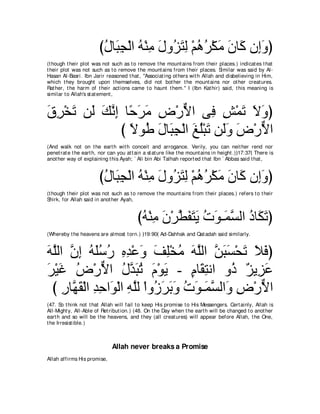 (وَإِن كَانَ مَكْرُهُمْ لِتَزُولَ مِنْهُ الْجِبَالُ)
(though their plot was not such as to remove the mountains from their places.) indicates that
their plot was not such as to remove the mountains from their places. Similar was said by Al-
Hasan Al-Basri. Ibn Jarir reasoned that, "Associating others with Allah and disbelieving in Him,
which they brought upon themselves, did not bother the mountains nor other creatures.
Rather, the harm of their actions came to haunt them." I (Ibn Kathir) said, this meaning is
similar to Allah's statement,
(وَلاَ تَمْشِ فِى الاٌّرْضِ مَرَحًا إِنَّكَ لَن تَخْرِقَ
الاٌّرْضَ وَلَن تَبْلُغَ الْجِبَالَ طُولاً )
(And walk not on the earth with conceit and arrogance. Verily, you can neither rend nor
penetrate the earth, nor can you attain a stature like the mountains in height.)[17:37] There is
another way of explaining this Ayah; `Ali bin Abi Talhah reported that Ibn `Abbas said that,
(وَإِن كَانَ مَكْرُهُمْ لِتَزُولَ مِنْهُ الْجِبَالُ)
(though their plot was not such as to remove the mountains from their places.) refers to their
Shirk, for Allah said in another Ayah,
(تَكَادُ السَّمَـوَتُ يَتَفَطَّرْنَ مِنْهُ)
(Whereby the heavens are almost torn.) [19:90] Ad-Dahhak and Qatadah said similarly.
(فَلاَ تَحْسَبَنَّ اللَّهَ مُخْلِفَ وَعْدِهِ رُسُلَهُ إِنَّ اللَّهَ
عَزِيزٌ ذُو انْتِقَامٍ - يَوْمَ تُبَدَّلُ الاٌّرْضُ غَيْرَ
الاٌّرْضِ وَالسَّمَـوَتُ وَبَرَزُواْ للَّهِ الْوَاحِدِ الْقَهَّارِ )
(47. So think not that Allah will fail to keep His promise to His Messengers. Certainly, Allah is
All-Mighty, All-Able of Retribution.) (48. On the Day when the earth will be changed to another
earth and so will be the heavens, and they (all creatures) will appear before Allah, the One,
the Irresistible.)
Allah never breaks a Promise
Allah affirms His promise,